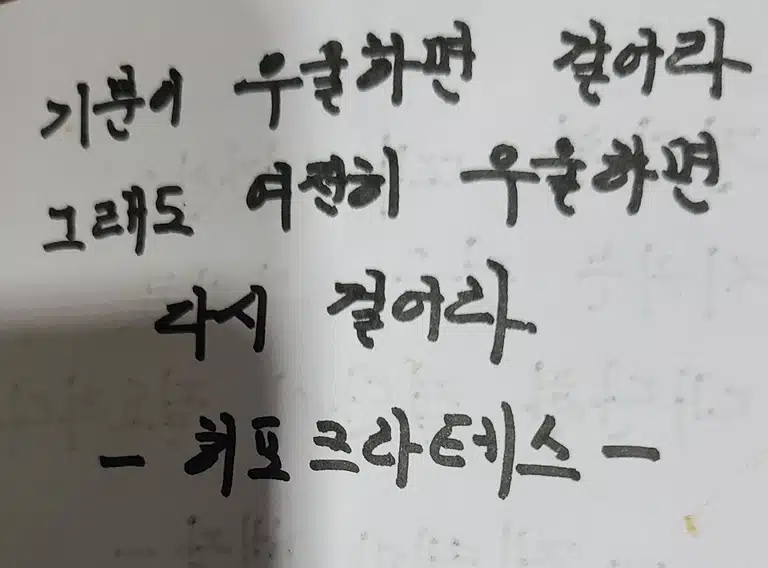 기분이 우울하면 걸어라
그래도 여전히 우울하면
다시 걸어라
- 히포크라테스 -